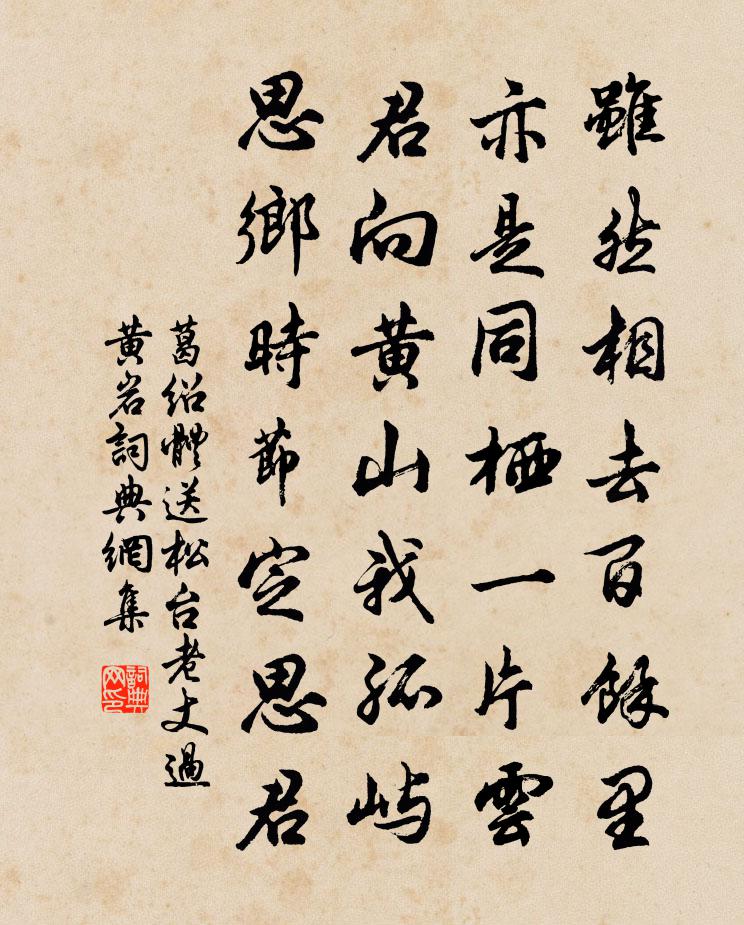 雖然相去百餘里
亦是同栖一片雲
君向黃山我孤嶼
思鄉時節定思君
葛紹體送松台老丈過
黃岩詞典網集
詞典
网印